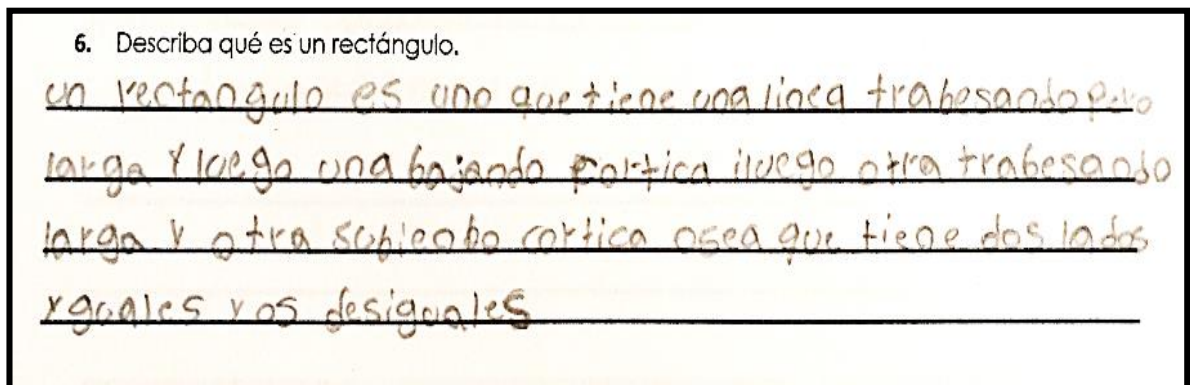 6. Describa qué es un rectángulo.
un rectangulo es uno que tiene una linea trabesando pero
larga y luego una bajando cortica iluego otra trabesando
larga y otra subienbo cortica osea que tiene dos lados
yguales y os desiguales